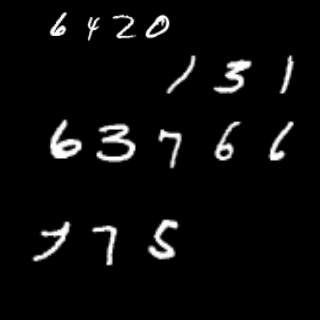 6420
131
63766
775